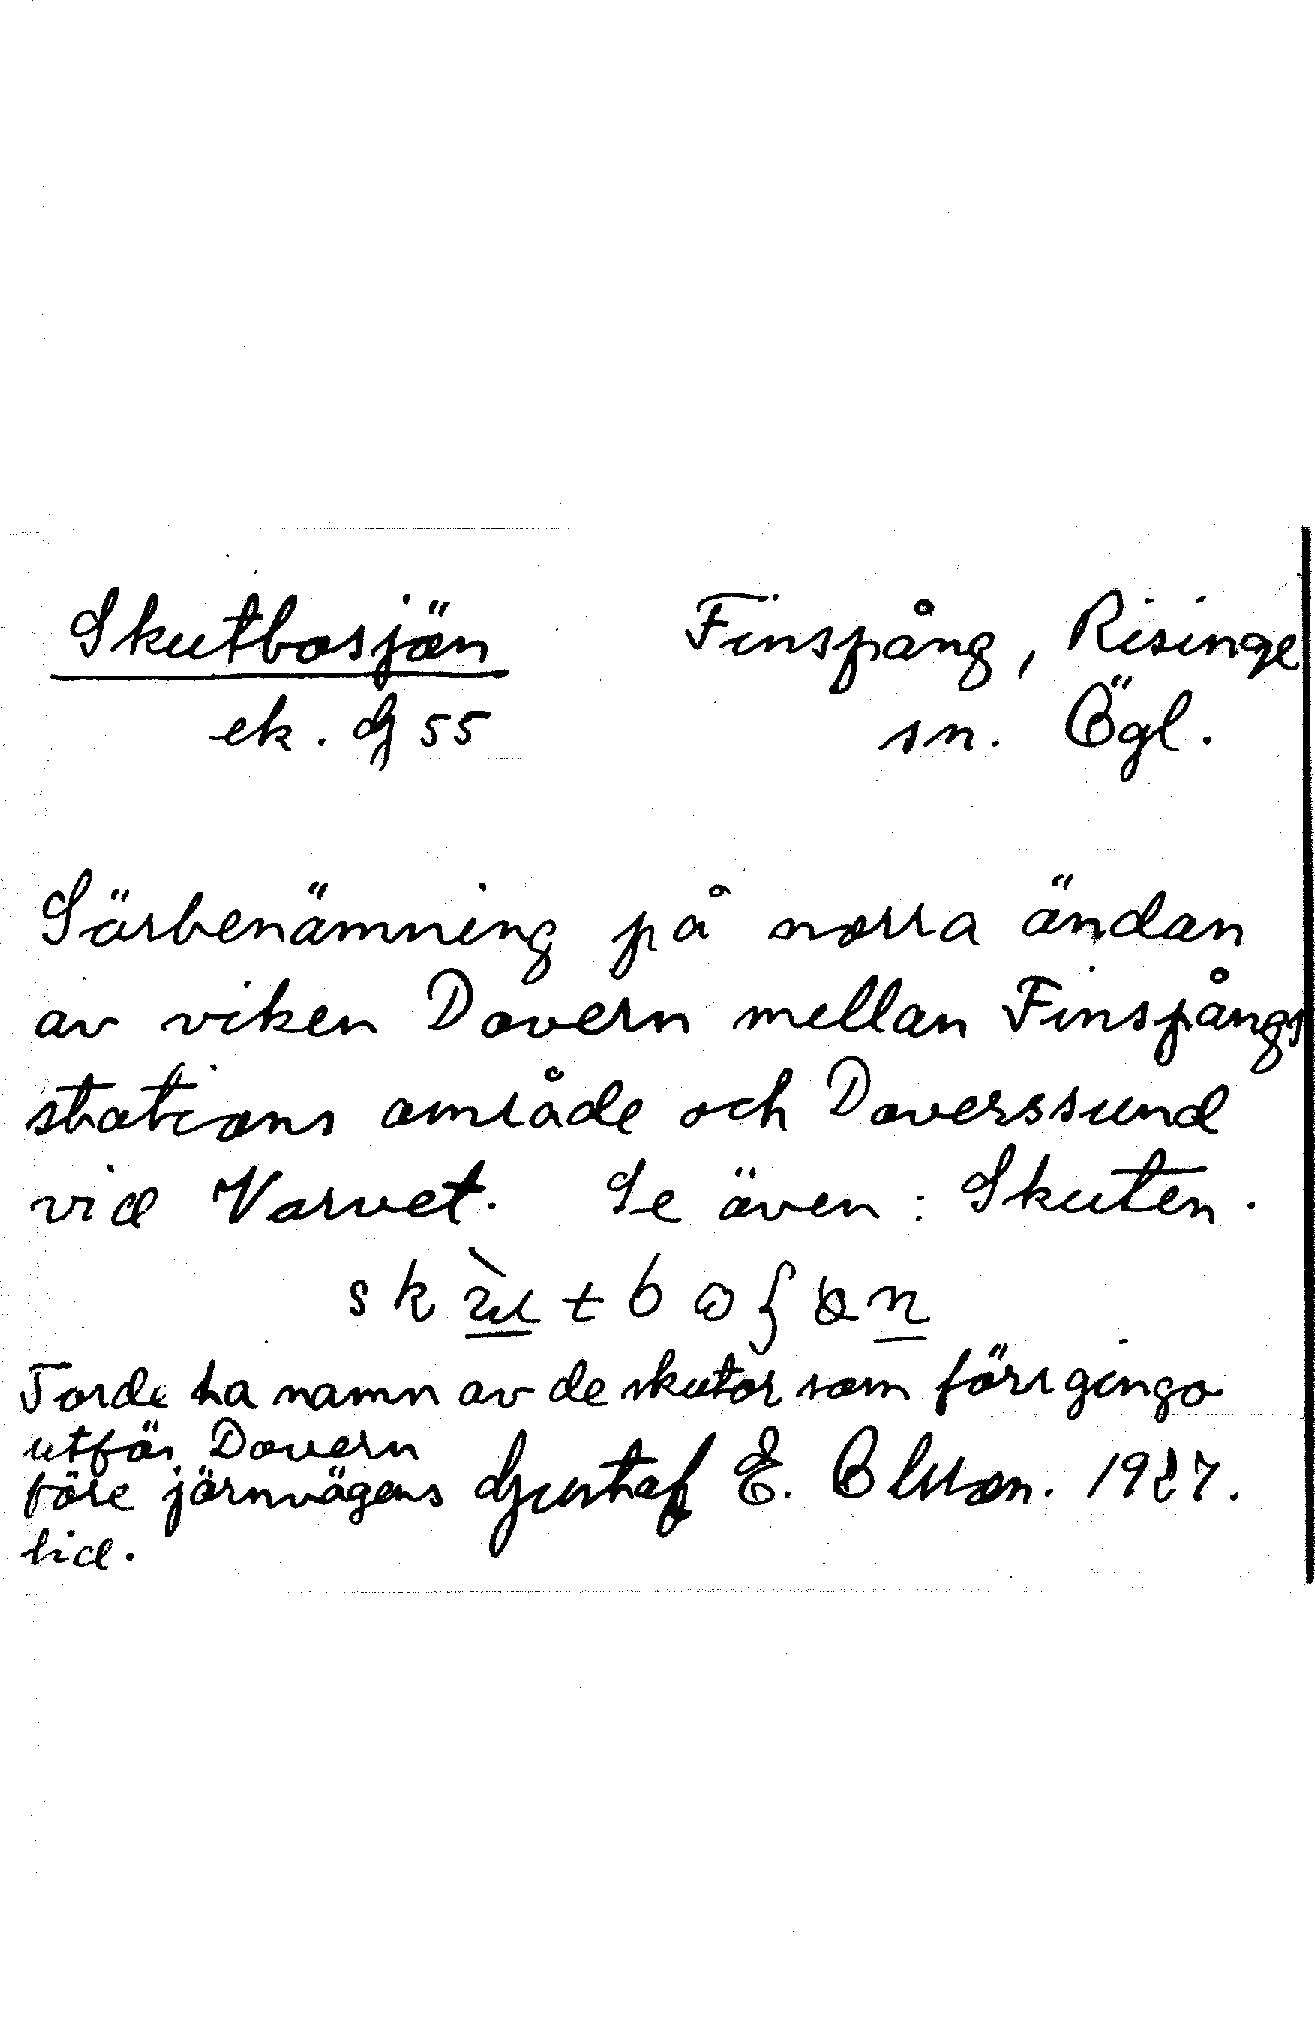 Skutbosjön Finspång, Risinge
ek. G 55 sn. Ögl.
Särbenämning på norra ändan
av viken Dovern mellan Finspångs
stations område och Doverssund
vid Varvet. Se även: Skuten.
Torde ha namn av de skutor som förr gingo
utför Dovern
före järnvägens Gustaf E. Olsson. 1927.
tid.